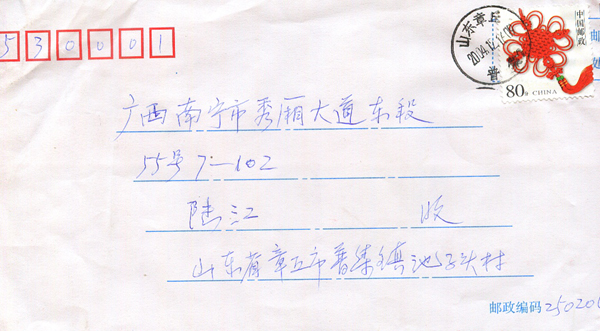 530001
山东章丘
2004.12.12
普
中国邮政
80分 CHINA
邮
处
广西南宁市秀厢大道东段
55号7-102
陆江 收
山东省章丘市普集镇池子头村
邮政编码 25020